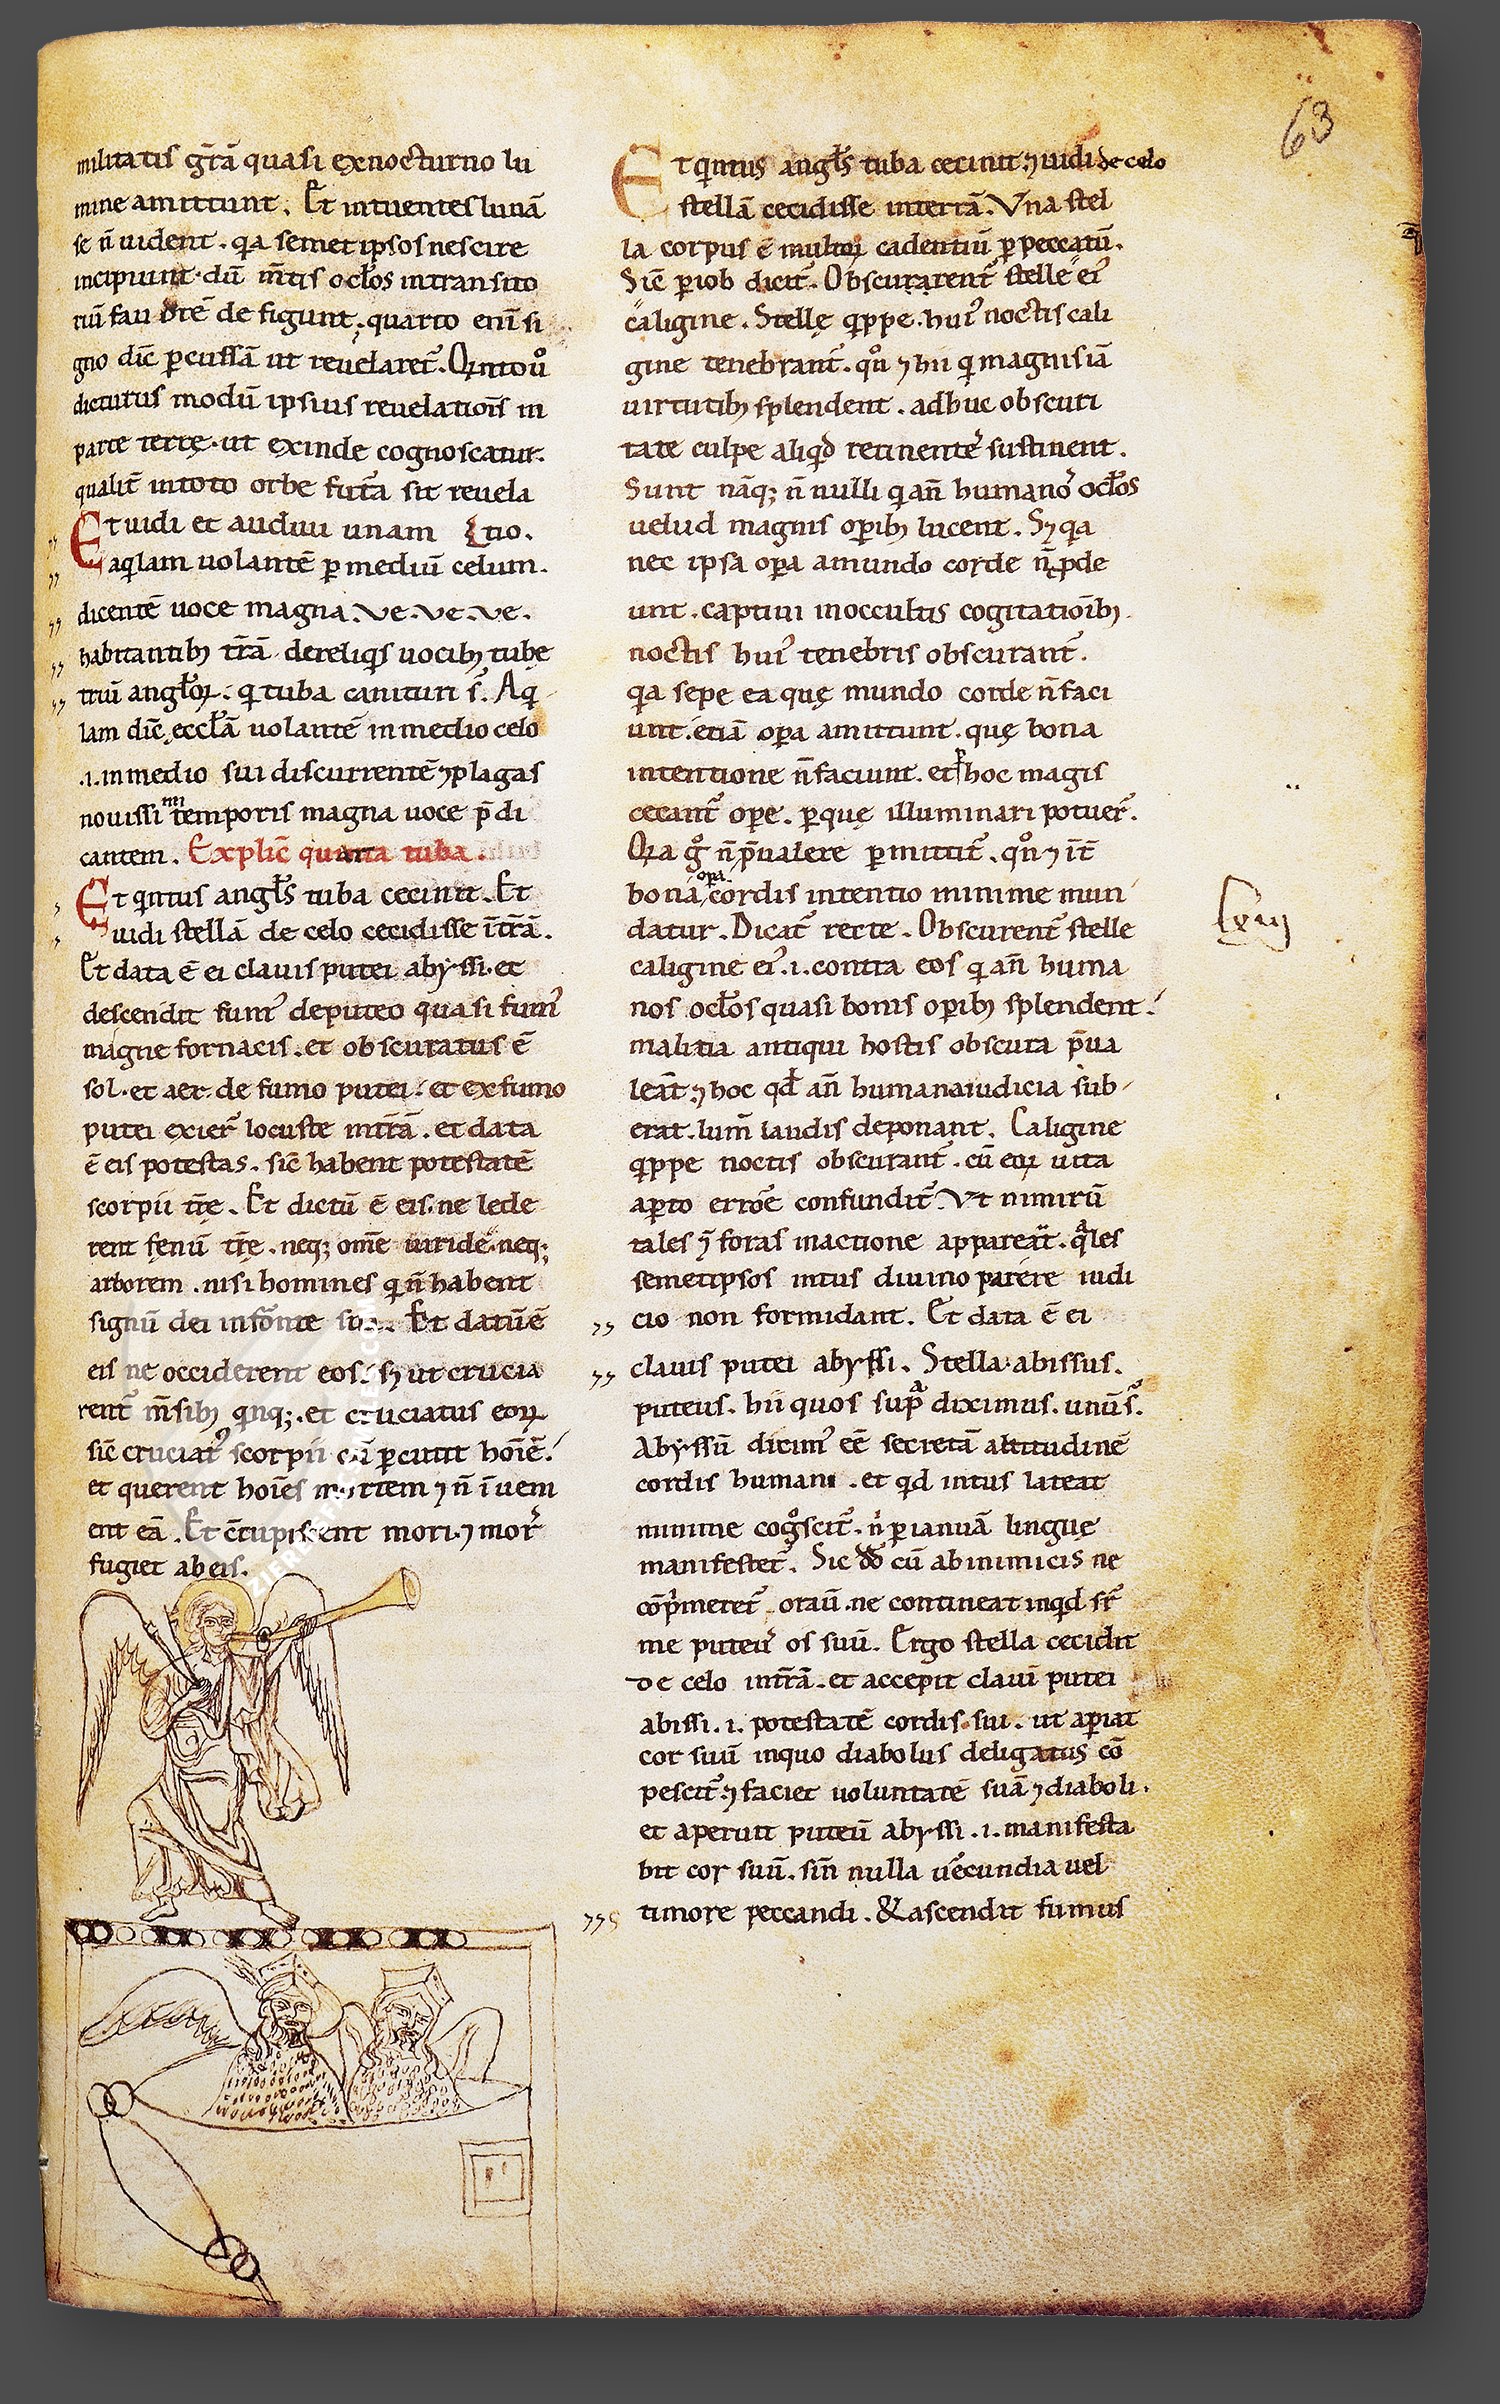 63
militatis gr̄ā quasi exnocturno lu
mine amittunt. Et intuentes lunā
se n̄ uident. qa semetipsos nescire
incipiunt. dū m̄tis ocl̄os intransito
dic̄ p̱cussā ut reuelaret̄.
dicturus modū ipsius reuelatiōis in
parte terrę. ut exinde cognoscatur.
qualit̄ intoto orbe fut̄a sit reuela
Et uidi et audiui unam tio.
aq̇lam uolantē p̱ mediū celum.
dicentē uoce magna. ve. ve. ve.
habitantibꝫ t̄rā. dereliq̇s uocibꝫ tubę
triū angl̄oꝝ. q̇ tuba canituri s̄. Aq̇
lam dic̄ ęccl̄ā uolantē inmedio celo
.i. inmedio sui discurrentē ⁊ plagas
nouissimi temporis magna uoce p̄di
cantem. Explic̄ quarta tuba.
Et q̇ntus angl̄s tuba cecinit. Et
uidi stellā de celo cecidisse īt̄rā.
Et data ē ei clauis putei abyssi. et
descendit fumꝰ deputeo quasi fumꝰ
magne fornacis. et obscuratus ē
sol. et aer. de fumo putei. et exfumo
putei exier̄ locuste int̄rā. et data
ē eis potestas. sic̄ habent potestatē
scorpii t̄rę. Et dictū ē eis. ne lede
rent fęnū t̄rę. neqꝫ om̄e uiride. neqꝫ
arborem. nisi homines q̇ n̄ habent
signū dei infr̄onte sua. Et datū ē
eis ne occiderent eos. sꝫ ut crucia
rent̄ m̄sibꝫ q̇nqꝫ. et cruciatus eoꝝ
sic̄ cruciatꝰ scorpii cū p̱cutit hoīē.
et querent hoīēs mortem ⁊ n̄ īuem
ent eā. Et c̄cupiscent mori. ⁊ morˢ
fugiet abeis.
Et q̇ntus angl̄s tuba cecinit. ⁊ uidi de celo
stellā cecidisse interrā. Vna stel
la corpus ē multoꝝ cadentiū p̱ peccatū.
Sic̄ p̱ iob dicit̄. Obscurarent̄ stelle eiꝰ
caligine. Stellę q̇ppe. huiꝰ noctis cali
gine tenebrant̄. qn̊ ⁊ hii q̇ magnis iā
uirtutibꝫ splendent. adhuc obscuri
tate culpe aliq̇d retinentē sustinent.
Sunt nāqꝫ n̄nulli q̇ an̄ humanoˢ ocl̄os
uelud magnis op̱ibꝫ lucent. Sꝫ qa
nec ipsa op̱a amundo corde n̄ p̱de
unt. captiui inoccultis cogitatiōibꝫ
noctis huiꝰ tenebris obscurant̄.
qa sepe ea quę mundo corde n̄ faci
unt. etiā op̱a amittunt. quę bona
intentione n̄ faciunt. et hoc magis
cecant̄ ope. p̱ quę illuminari potuer̄.
Qꝛa g̊ n̄ p̄ualere p̱mittit̄. qn̊ ⁊ īt̄
bona opa cordis intentio minime mun
datur. Dicat̄ recte. Obscurent̄ stelle
caligine eiꝰ. .i. contra eos q̇ an̄ huma
nos ocl̄os quasi bonis op̱ibꝫ splendent.
malitia antiqui hostis obscura p̄ua
leat̄. ⁊ hoc qd̄ an̄ humana iudicia sub
erat. lum̄ laudis deponant. Caligine
q̇ppe noctis obscurant̄. cū eoꝝ uita
ap̱to errōe confundit̄. Vt nimirū
tales ꝫ foras inactione appareāt. qᵃles
semetipsos intus diuino parere iudi
cio non formidant. Et data ē ei
clauis putei abyssi. Stella. abissus.
puteus. hii quos supᵃ diximus. unū sᵗ.
Abyssū dicimꝰ ēē secretā altitudinē
cordis humani. et qd intus lateat
minime cog̊scit̄. nˢ p̱ ianuā linguę
manifestet̄. Sic dd̄ cū abinimicis ne
cōp̄meret̄ oraū. ne contineat inq̇d sr̄
me puteꝰ os suū. Ergo stella cecidit
de celo int̄rā. et accepit clauī putei
abissi. .i. potestatē cordis sui. ut ap̱iat
cor suū inquo diabolus deligatus cō
pescit̄. ⁊ faciet uoluntatē suā ⁊ diaboli.
et aperuit puteū abyssi. .i. manifesta
bit cor suū. sin̄ nulla uēcundia uel
timore peccandi. & ascendit fumus
lxiij